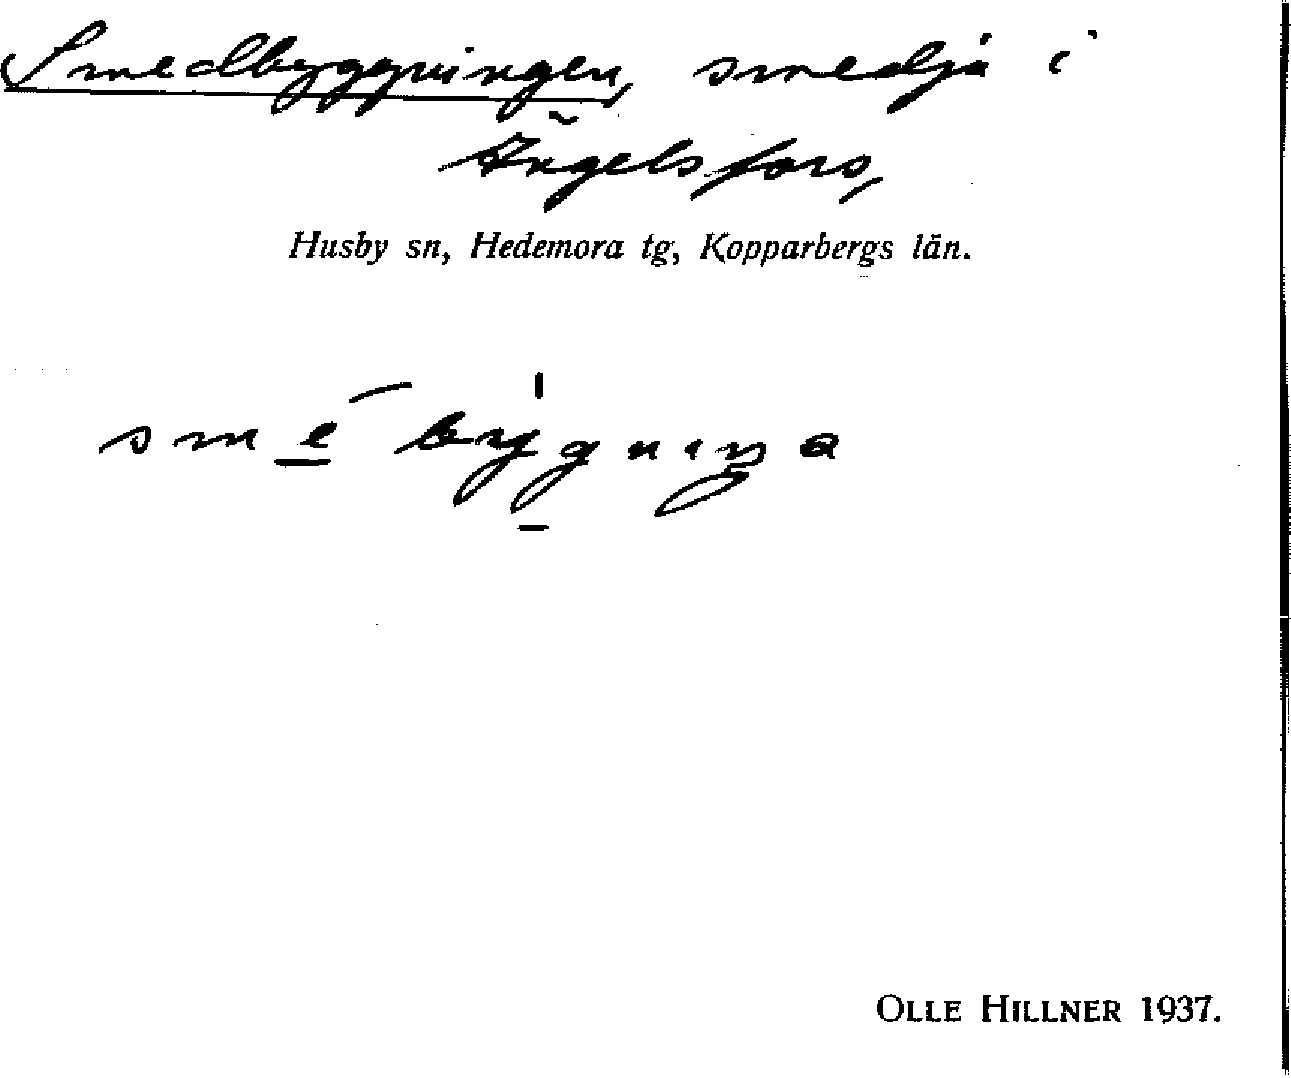 Smedbyggningen, smedja i
Ängelsfors,
Husby sn, Hedemora tg, Kopparbergs län.
smebygniŋa
OLLE HILLNER 1937.